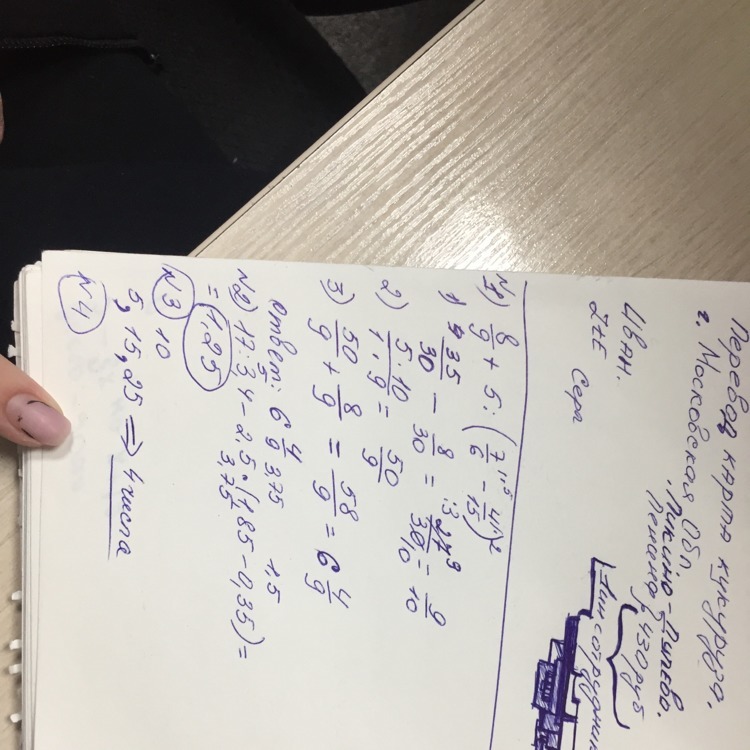 Перевод карта кукуруза.
г. Московская Обл
. Ликино-Дулево.
430 руб
Иван.
Сера
№1) 8/9 + 5 : (7/6 - 4/15)
1) 35/30 - 8/30 = 27/30 = 9/10
2) 5·10/1·9 = 50/9
3) 50/9 + 8/9 = 58/9 = 6 4/9
ответ: 6 4/9
5 3,75 1,5
№2) 17 : 3,4 - 2,5 · (1,85 - 0,35) =
3,75
= 1,25
№3 10
5, 15, 25 => 4 числа
№4